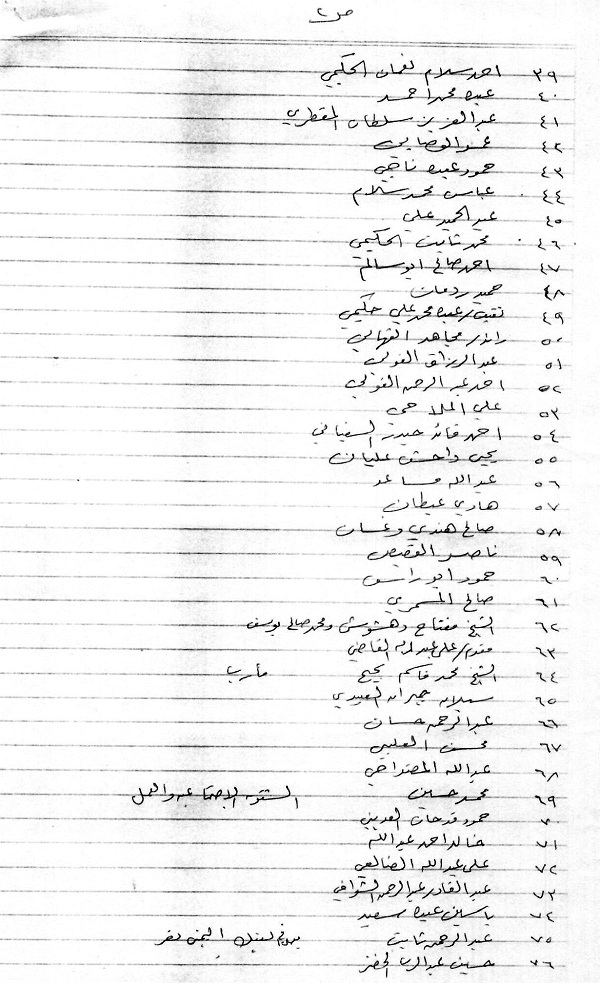 ص٢
٣٩ احمد سلام نعمان الحكيمي
٤٠ عبده محمد احمد
٤١ عبدالعزيز سلطان المقطري
٤٢ عمر الوصابي
٤٣ حمود عبده ناجي
٤٤ عباس محمد سلام
٤٥ عبدالحميد علي
٤٦ محمد ثابت الحكيمي
٤٧ احمد صالح ابو سالم
٤٨ حميد ردمان
٤٩ نقيب/ عبده محمد علي حكيمي
٥٠ رائد/ مجاهد القهالي
٥١ عبدالرزاق الغولي
٥٢ احمد عبدالرحمن الغولي
٥٣ علي الملاحي
٥٤ احمد قائد حيدر السفياني
٥٥ يحي داحش عليان
٥٦ عبدالله مساعد
٥٧ هادي عيطان
٥٨ صالح هندي دغسان
٥٩ ناصر
٦٠ حمود ابو راس
٦١ صالح المسمري
٦٢ الشيخ مفتاح وهشوش ومحمد صالح يوسف
٦٣ مقدم/ علي عبدربه القاضي
٦٤ الشيخ محمد قاسم بحيبح مأرب
٦٥ جبران العبيدي
٦٦ عبدالرحمن حسان
٦٧ محسن
٦٨ عبدالله
٦٩ محمد حسين الشئون الاجتماعيه والعمل
٧٠ حمود فرحان العديني
٧١ خالد احمد عبدالله
٧٢ علي عبدالله الضالعي
٧٣ عبدالقادر عبدالرحمن الشوافي
٧٤ ياسين عبده سعيد
٧٥ عبدالرحمن ثابت البنك اليمني تعز
٧٦ حسين عبدالرب الخضر